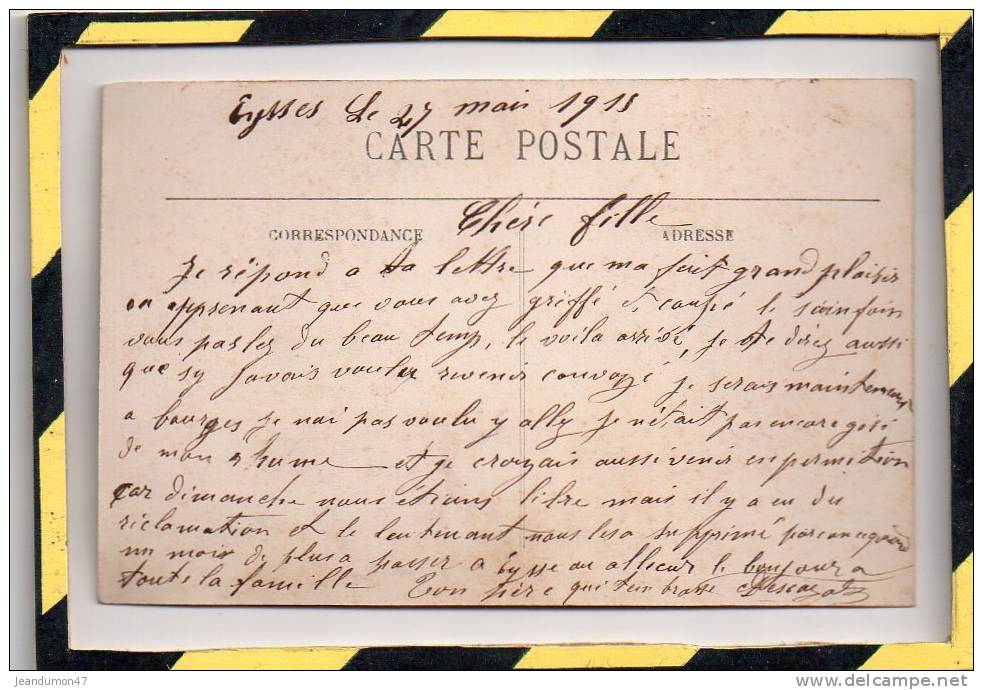 Eysses Le 27 mai 1915
CARTE POSTALE
Chére fille
CORRESPONDANCE
ADRESSE
Je répond a ta lettre que ma fait grand plaisir
en apprenant que vous avez griffé et coupé le sainfoin
vous parlez du beau temp, le voila arrivé, je te direz aussi
que sy javais vouler revenir je serais maintenent
a bourges je nai pas voulu y allez je nétait pas encore
de mon rhume et je croyais aussi venir en permition
car dimanche nous étions libre mais il y a eu du
réclamation et le leutenant nous les a supprimé
un moir de plus a passer a Eysse ou alleeur le bonjour a
toute la famille Ton père qui tembrasse
jeandumon47
www.delcampe.net